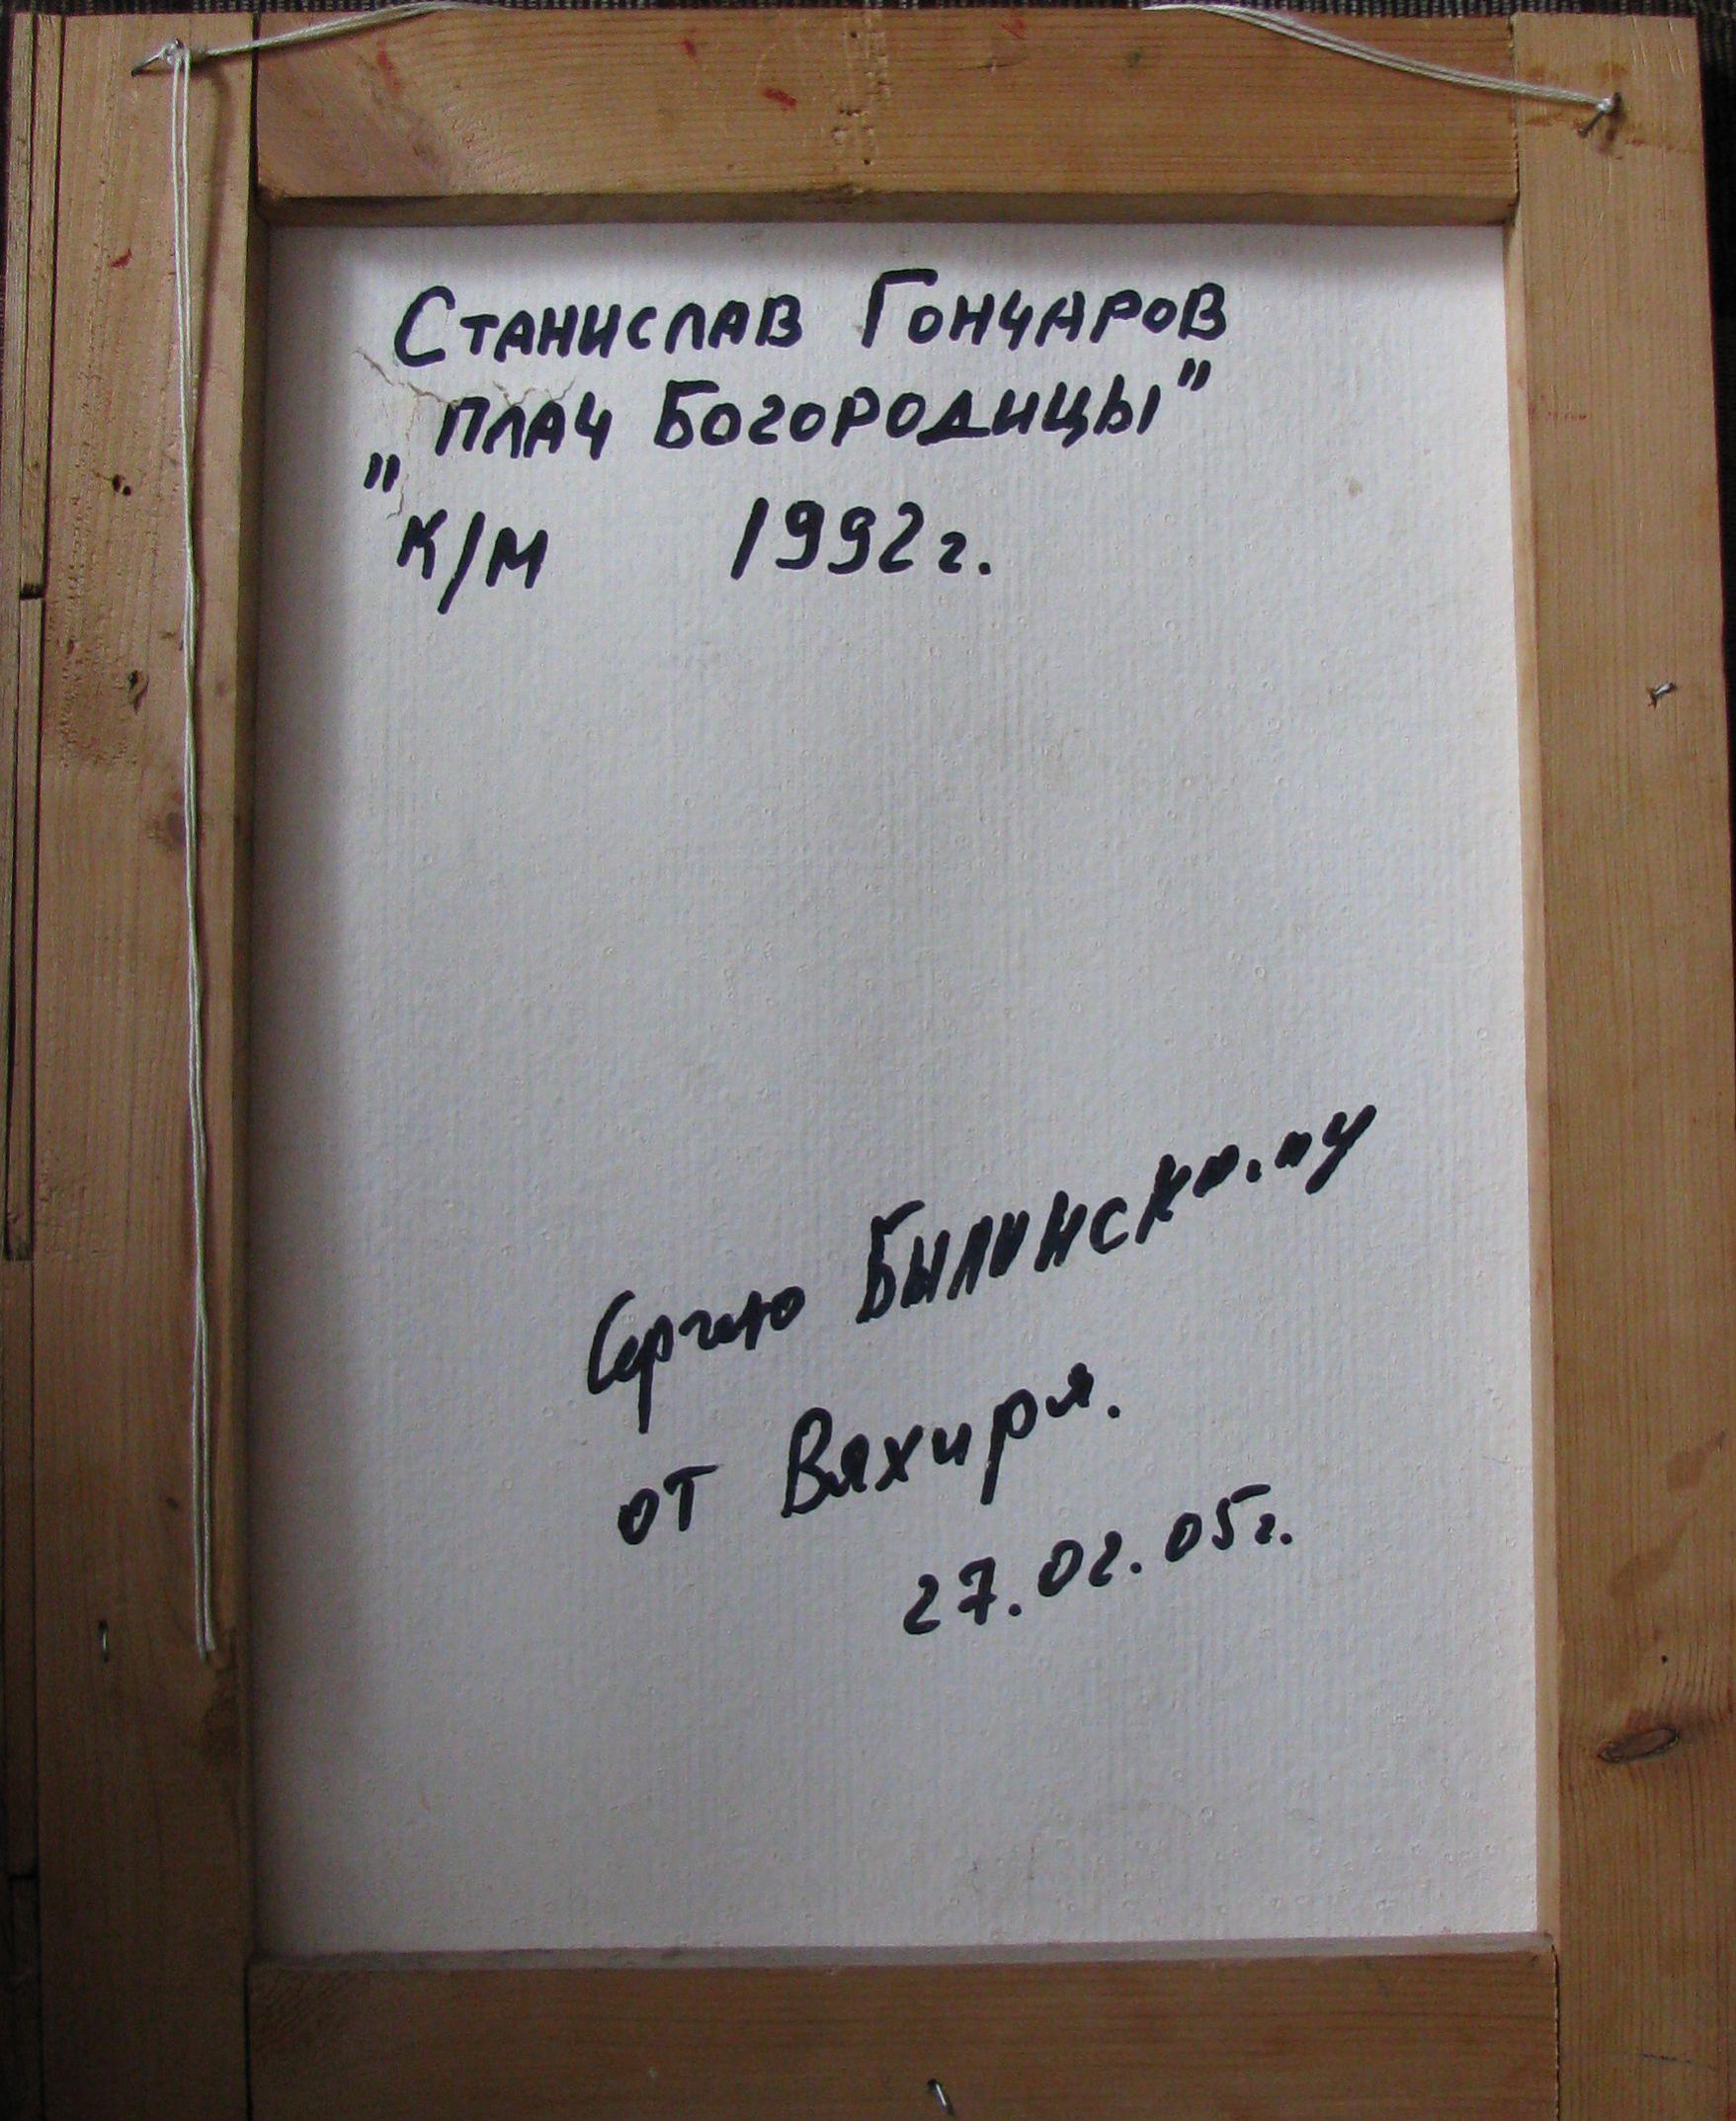 Станислав Гончаров
„плач Богородицы"
к/м 1992г.
Сергею Былинскому
от Вяхиря.
27.02.05г.